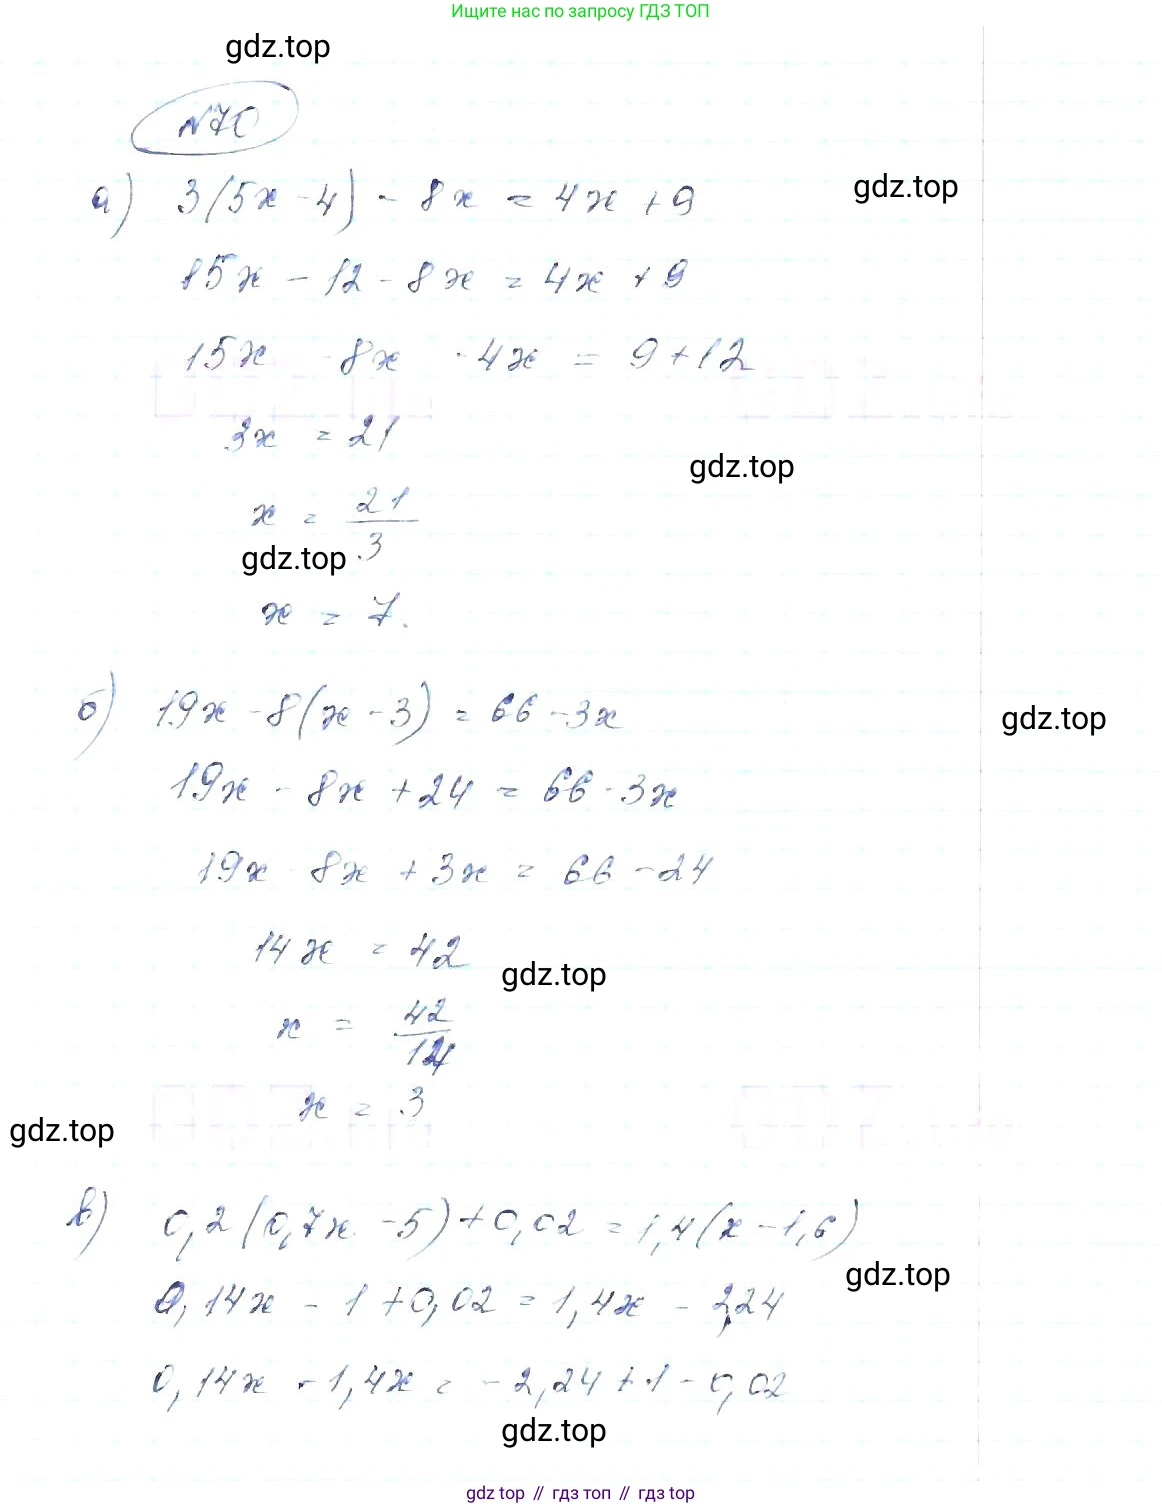 Ищите нас по запросу ГДЗ ТОП
gdz.top
№70
а) 3(5x - 4) - 8x = 4x + 9
gdz.top
15x - 12 - 8x = 4x + 9
15x - 8x - 4x = 9 + 12
3x = 21
gdz.top
x = 21/3
gdz.top
x = 7.
б) 19x - 8(x - 3) = 66 - 3x
gdz.top
19x - 8x + 24 = 66 - 3x
19x - 8x + 3x = 66 - 24
14x = 42
gdz.top
x = 42/14
x = 3
gdz.top
в) 0,2(0,7x - 5) + 0,02 = 1,4(x - 1,6)
gdz.top
0,14x - 1 + 0,02 = 1,4x - 2,24
0,14x - 1,4x = -2,24 + 1 - 0,02
gdz.top
gdz top // гдз топ // гдз top